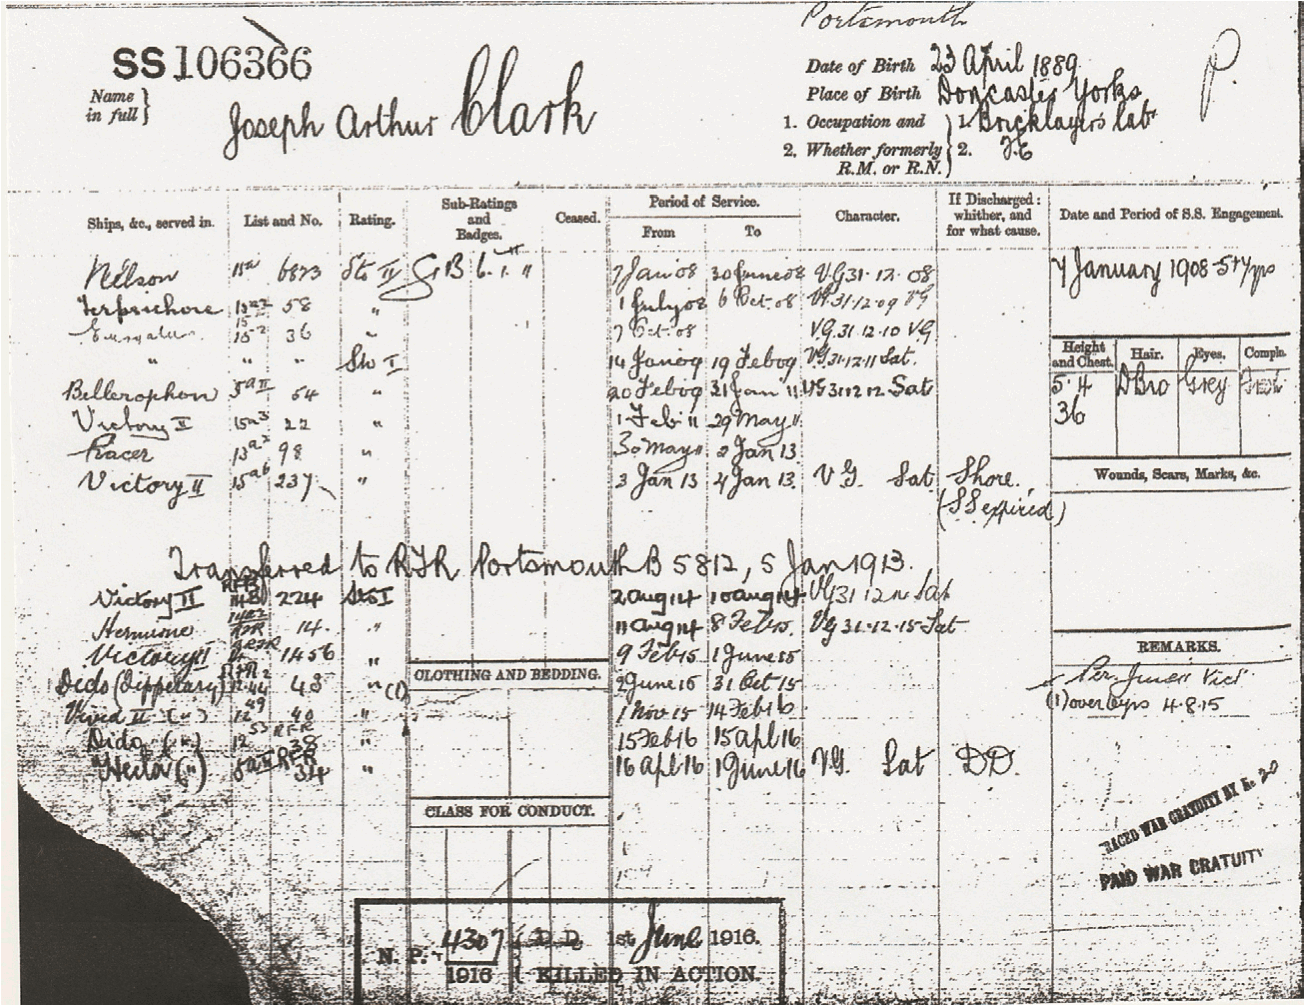 Portsmouth
SS 106366
P.
Name in full } Joseph Arthur Clark
Date of Birth 23 April 1889
Place of Birth Doncaster Yorks
1. Occupation and } 1. Bricklayer's lab
2. Whether formerly R.M. or R.N. } 2.
Ships, &c., served in. List and No. Rating. Sub-Ratings and Badges. Ceased. Period of Service. From To Character. If Discharged: whither, and for what cause. Date and Period of S.S. Engagement.
Nelson 15a 6873 Sto II 7 Jan 08 30 June 08 VG 31.12.08
7 January 1908 - 5+7 yrs
Terpsichore 58 " 1 July 08 6 Oct. 08 VG 31.12.09 VG
36 " 7 Oct. 08 VG. 31.12.10 VG
" " " Sto I 14 Jan 09 19 Feb 09 VG 31.12.11 Sat.
Height and Chest. Hair. Eyes. Compln.
Bellerophon 5a II 54 " 20 Feb 09 31 Jan 11 VG 31 12 12 Sat
5.4 D Bro Grey
36
Victory II 15a3 22 " 1 Feb 11 29 May 11
Racer 13a2 98 " 30 May 11 2 Jan 13
Victory II 15a6 237 " 3 Jan 13 4 Jan 13. VG Sat Shore.
(SS expired)
Wounds, Scars, Marks, &c.
Transferred to RFR Portsmouth B 5812, 5 Jan 1913.
Victory II RFR 224 Sto I 2 aug 14 10 aug 14 VG 31 12 14 Sat
Hermione RFR 14. " 11 aug 14 8 Feb 15. VG 31.12.15 Sat
Victory II RFR 1456 " 9 Feb 15 1 June 15
REMARKS.
CLOTHING AND BEDDING.
Dido (Tipperary) 48 " (1) 2 June 15 31 Oct 15
(1) over 6 yrs 4.8.15
II (") 12 40 " 1 Nov 15 14 Feb 16
Dido (") 12 RFR 38 " 15 Feb 16 15 apl 16
Hecla (") 5a II RFR 34 " 16 apl 16 1 June 16 VG. Sat DD.
CLASS FOR CONDUCT.
TRACED WAR GRATUITY
PAID WAR GRATUITY
N. P. 4307 1916 { D.D. 1st June 1916.
KILLED IN ACTION.